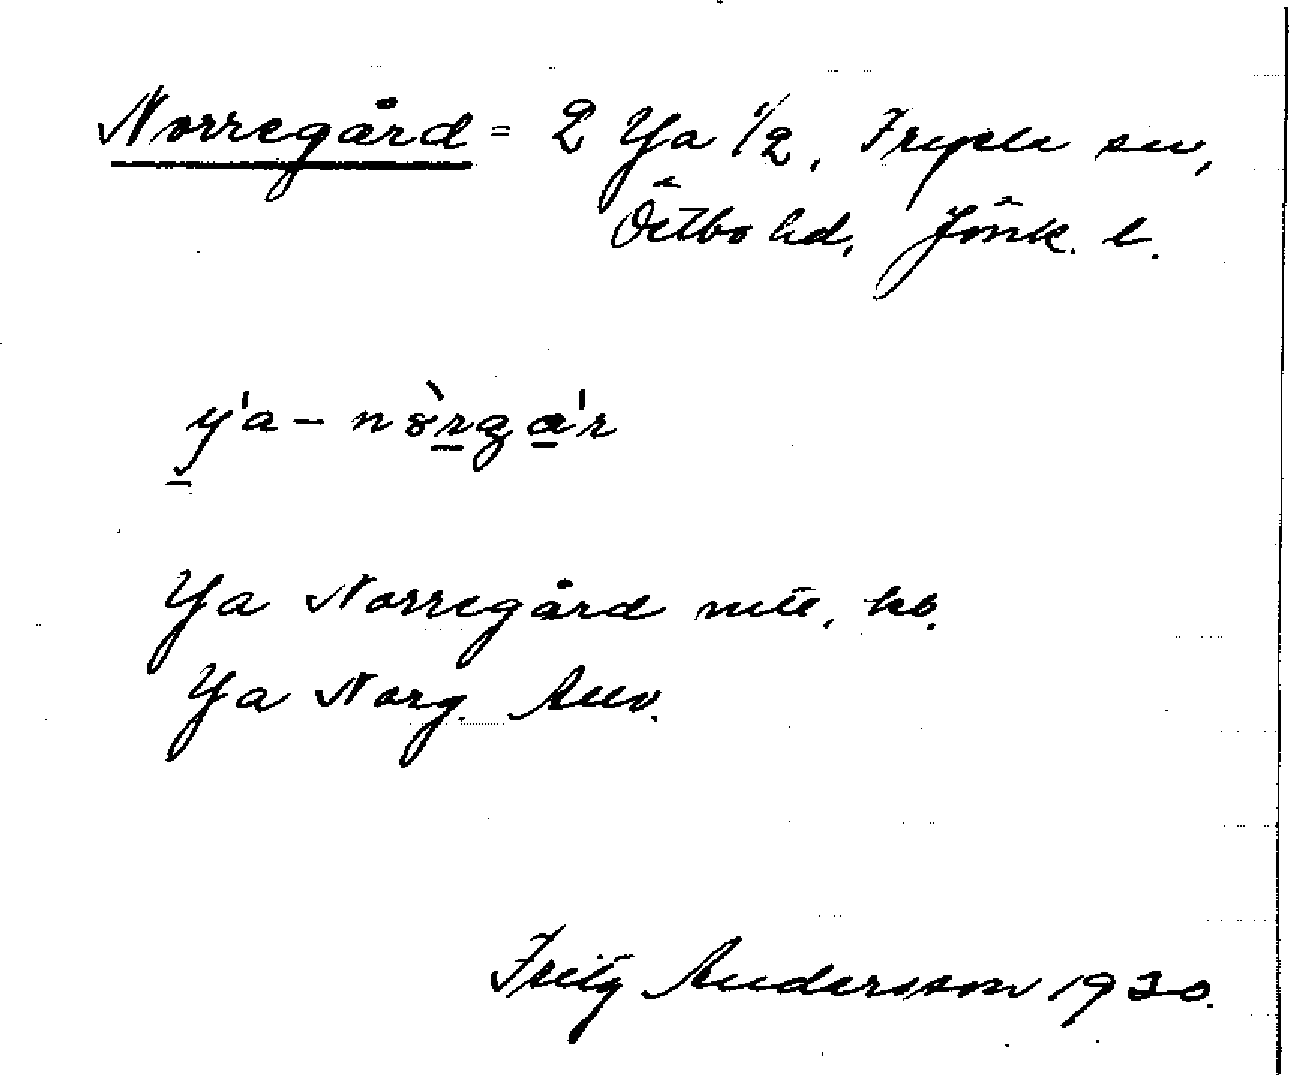 Norregård = 2 Ya 1/2, Fryele sn,
Östbo hd, Jönk. l.
y'a – nòrga'r
Ya Norregård mtl. kb.
Ya Norg. Anv.
Fritz Andersson 1930.